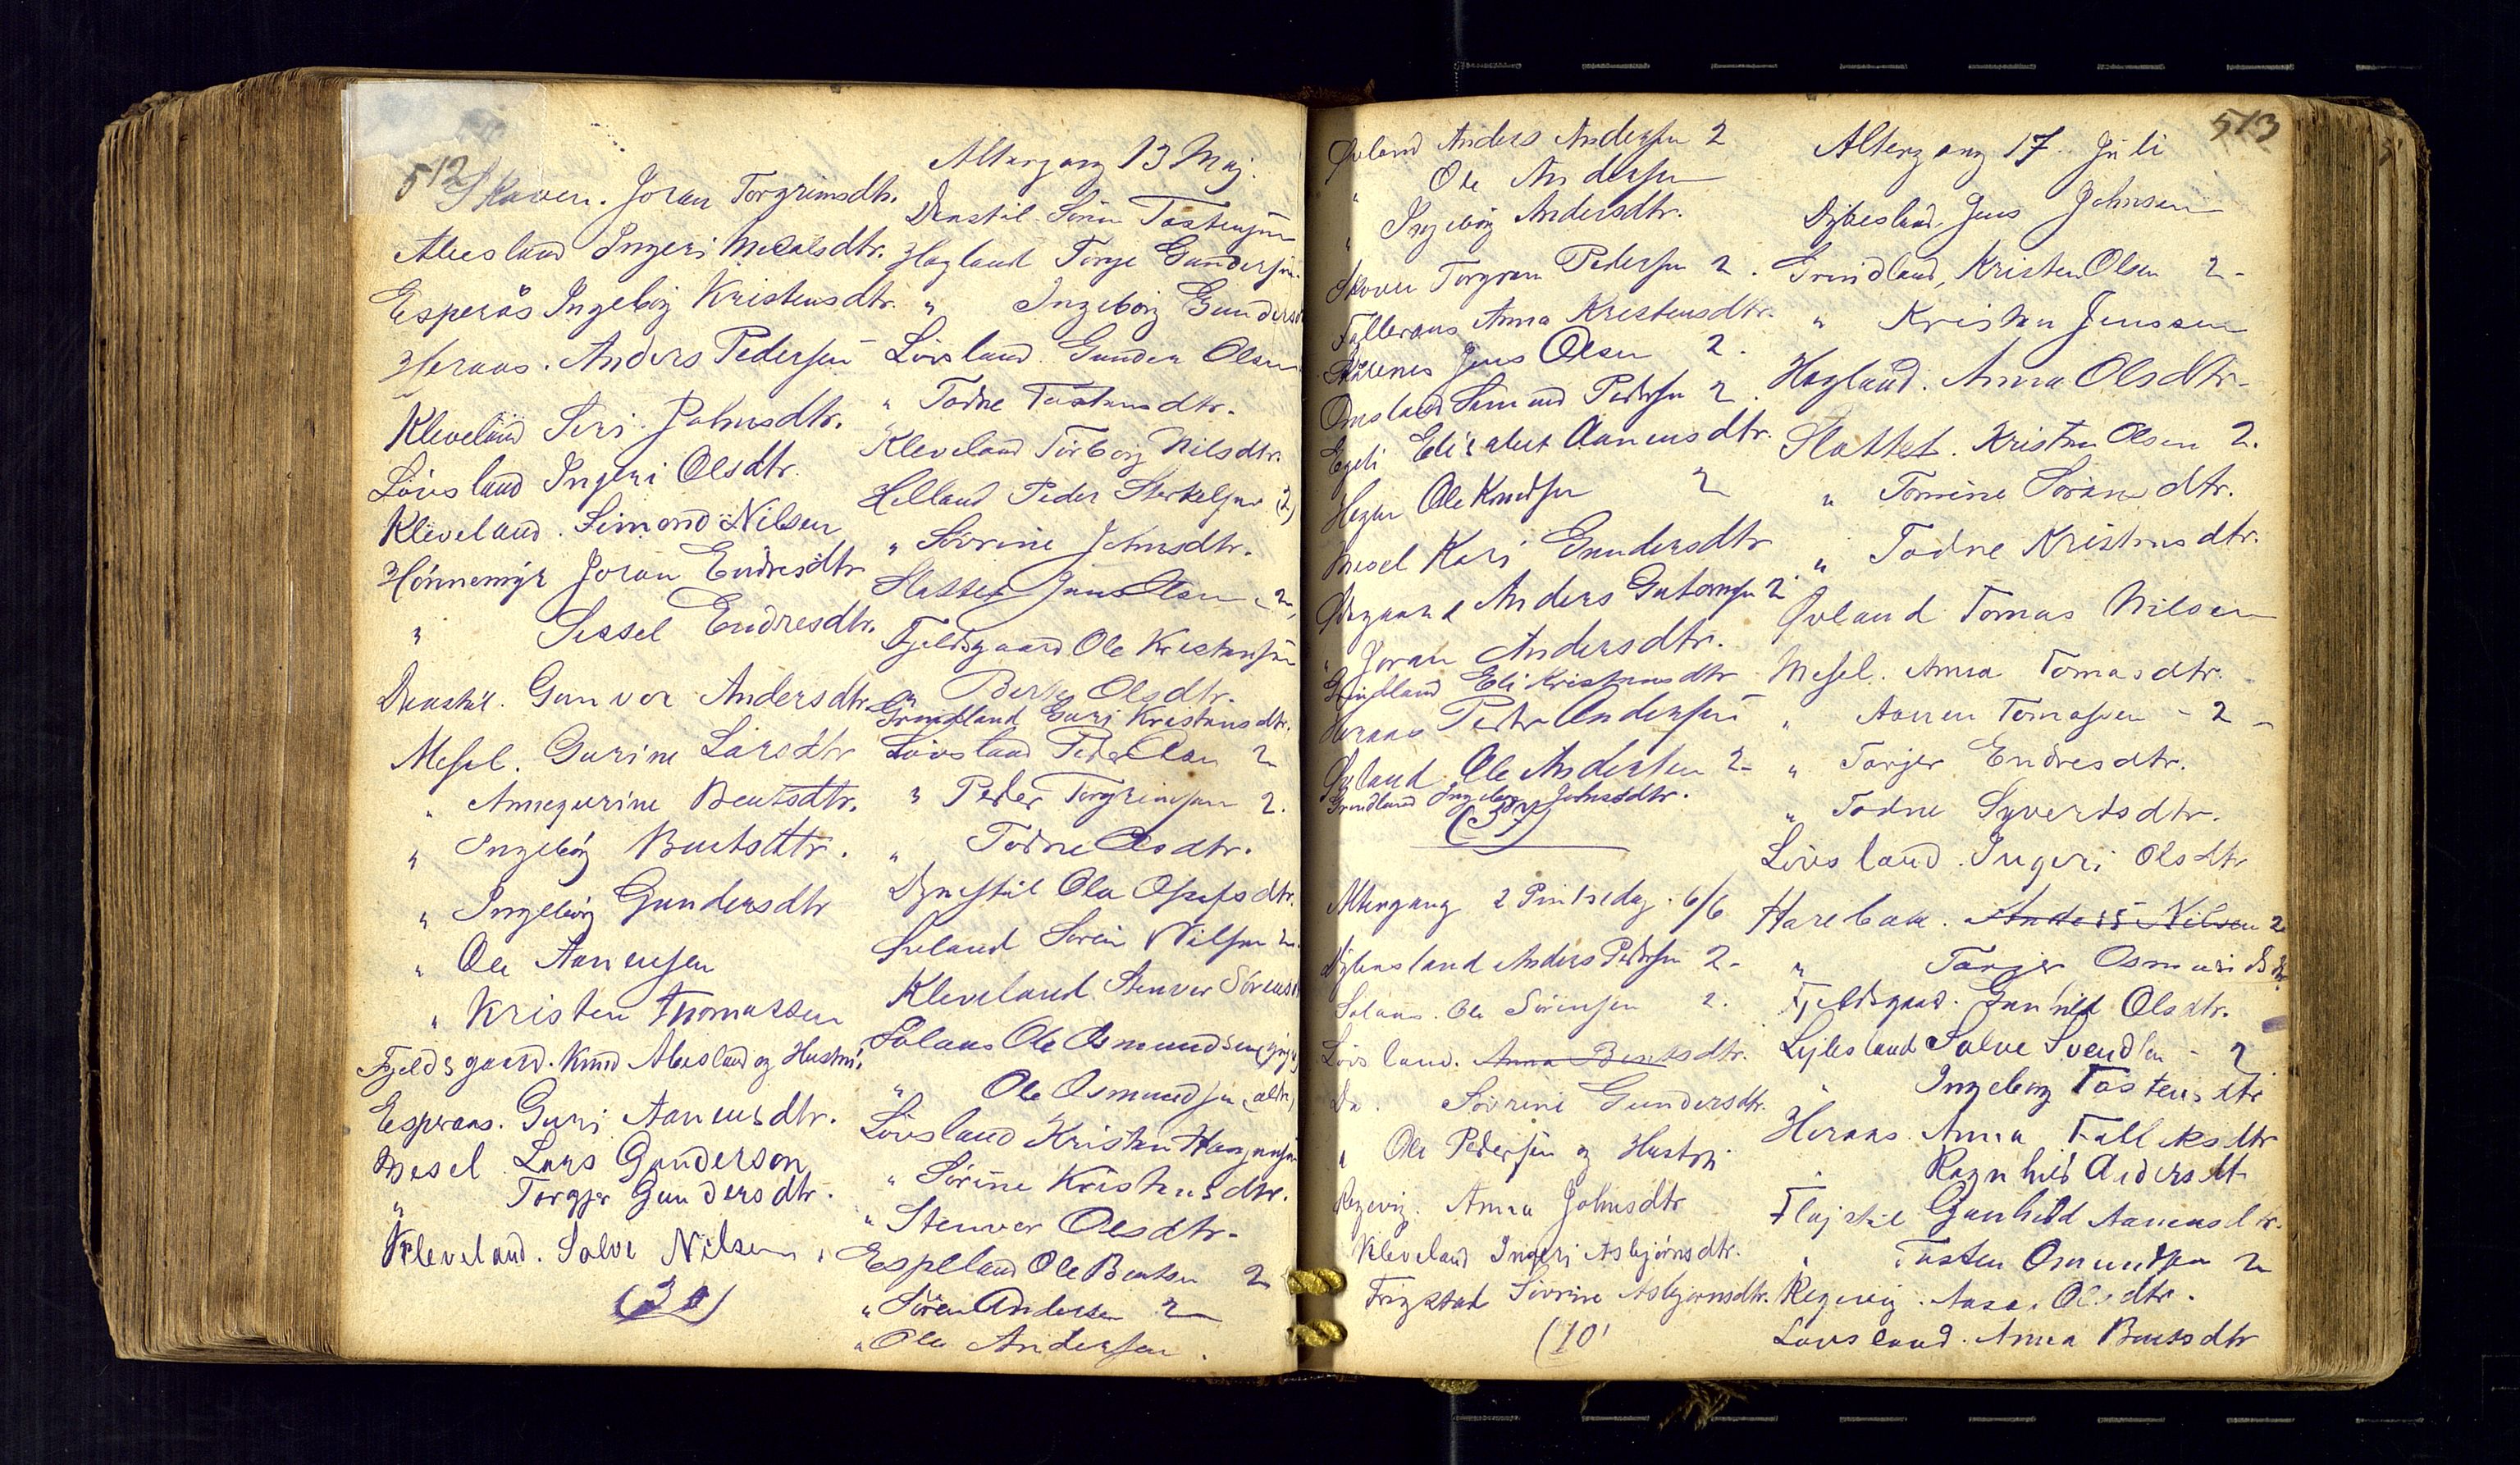 512
Skoven. Joran Torgrimsdtr.
Abesland Ingeri Nielsdtr.
Esperås Ingebõrg Kristensdtr.
Heraas. Anders Pedersen
Kleveland Siri Johnsdtr.
Lövsland Ingeri Olsdtr.
Kleveland. Simond Nilsen
Hönnemyr Joran Endresdtr
" Sissel Endresdtr.
Dønstøl. Gunvor Andersdtr
Mesel. Gurine Larsdtr
" Annegurine Bentsdtr.
" Ingebõrg Bentsdtr.
" Ingebõrg Gundersdtr
" Ole Aanensen
" Kristen Thomassen
Fjeldsgaard. Knud Abesland og Hustru.
Esperaas. Guri Aanensdtr.
Mesel Lars Gunderson
" Torgjer Gundersdtr.
Kleveland. Salve Nilsen.
Altergang 13 Maj.
Sören Tostensen
Hagland Torge Gundersen
" Ingebõrg Gundersd
Lövsland. Gunder Olsen
" Todne Tostensdtr.
Kleveland Torborg Nilsdtr.
Helland Peder Sterkelsen (2)
" Sörine Johnsdtr.
Slottet Jens Olsen 2
Fjeldsgaard Ole Kristensen
" Berte Olsdtr.
Grindland Guri Kristensdtr.
Lövsland Peder Olsen 2
" Peder Torgrimsen 2.
" Todne Olsdtr.
Ola dtr.
Övland Sören Nilsen 2
Kleveland Stenvor Sörens
Solaas Ole Osmundsen (yngre)
" Ole Osmundsen (ældre)
Lövsland Kristen
" Sörine Kristensdtr.
" Stenvor Olsdtr.
Espeland Ole Bentsen 2
" Sören Andersen 2
" Ole Andersen.
513
Øvland Anders Andersen 2
" Ole Andersen
" Ingebõrg Andersdtr.
Skoven Torgrim Pedersen 2.
Anna Kristensdtr.
Jens Olsen 2.
Omsland Samund Pedersen 2.
Egeli Elisabet Aanensdtr.
Ole Knudsen 2
Mesel Kari Gundersdtr
Anders Gutormsen 2
" Joran Andersdtr.
Grindland Eli Kristensdtr
Heraas Peder Andersen
Øvland Ole Andersen 2
Grindland Ingeborg Johnsdtr.
(37)
Altergang 2 Pintsedag. 6/6
Dybesland Anders Pedersen 2
Solaas. Ole Sörensen 2.
Lövsland. Anna Bentsdtr.
Do. Sörine Gundersdtr.
" Ole Pedersen og Hustru
Regevig. Anna Johnsdtr
Kleveland Ingeri Asbjörnsdtr.
Frigstad Sörine Asbjörnsdtr.
(10
Altergang 17. Juli
Dybesland. Jens Johnsen
Grindland, Kristen Olsen 2
" Kristen Jenssen
Hagland. Anna Olsdtr
Slottet. Kristen Olsen 2.
" Tomine Sörensdtr.
" Todne Kristensdtr.
Øvland Tomas Nilsen
Mesel. Anna Tomasdtr.
" Aanen Tomassen 2
" Torjer Endresdtr.
" Todne Syvertsdtr.
Lövsland. Ingeri Olsdtr
Harebak. Anders Nilsen 2
" Torjer Osmundsdtr
Fjeldsgaard. Gunhild Olsdtr.
Lylesland Salve Svendsen 2
" Ingeborg Tostensdtr
Heraas. Anna Falleksdtr
" Ragnhild Andersdt
Gunhild Aanensdtr.
" Tosten Osmundsen 2
Regevig. Aasa. Olsdtr.
Lövsland. Anna Bentsdtr